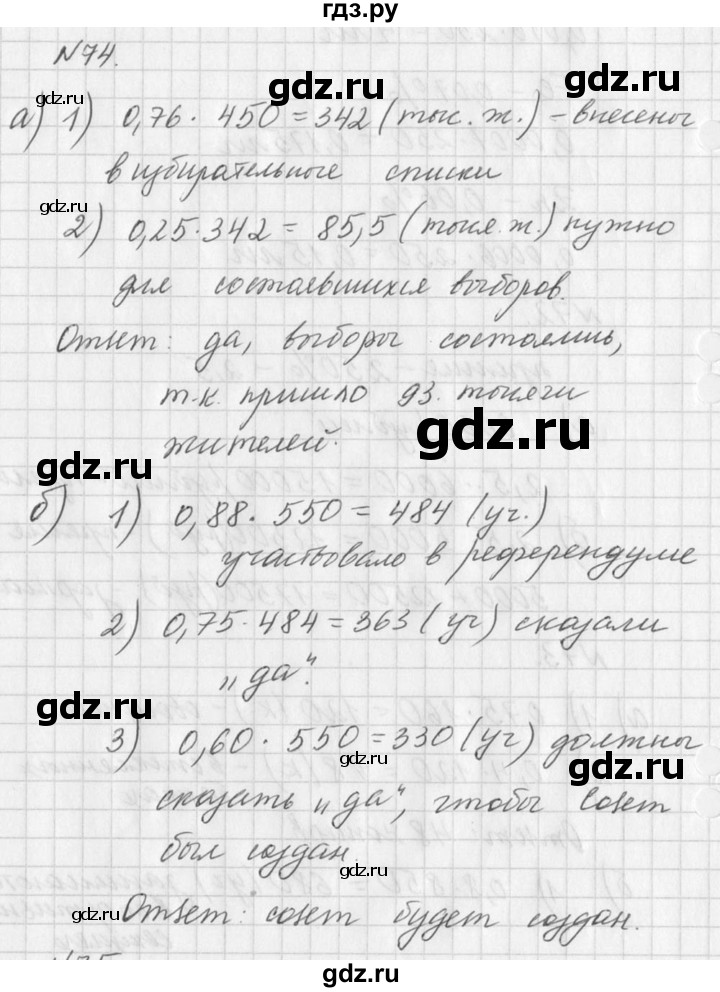 гдз.ру
№74.
а) 1) 0,76 · 450 = 342 (тыс. ж.) – внесены
в избирательные списки
2) 0,25 · 342 = 85,5 (тыс. ж.) нужно
для состоявшихся выборов.
Ответ: да, выборы состоялись,
т.к. пришло 93 тысячи
жителей.
б) 1) 0,88 · 550 = 484 (уч.)
участвовало в референдуме
2) 0,75 · 484 = 363 (уч) сказали
„да“.
3) 0,60 · 550 = 330 (уч) должны
сказать „да“, чтобы Совет
был создан
Ответ: совет будет создан.
№75
gdz.ru
gdz.ru
gdz.ru
gdz.ru
gdz.ru
gdz.ru
gdz.ru
gdz.ru
gdz.ru
gdz.ru
gdz.ru
gdz.ru
gdz.ru
gdz.ru